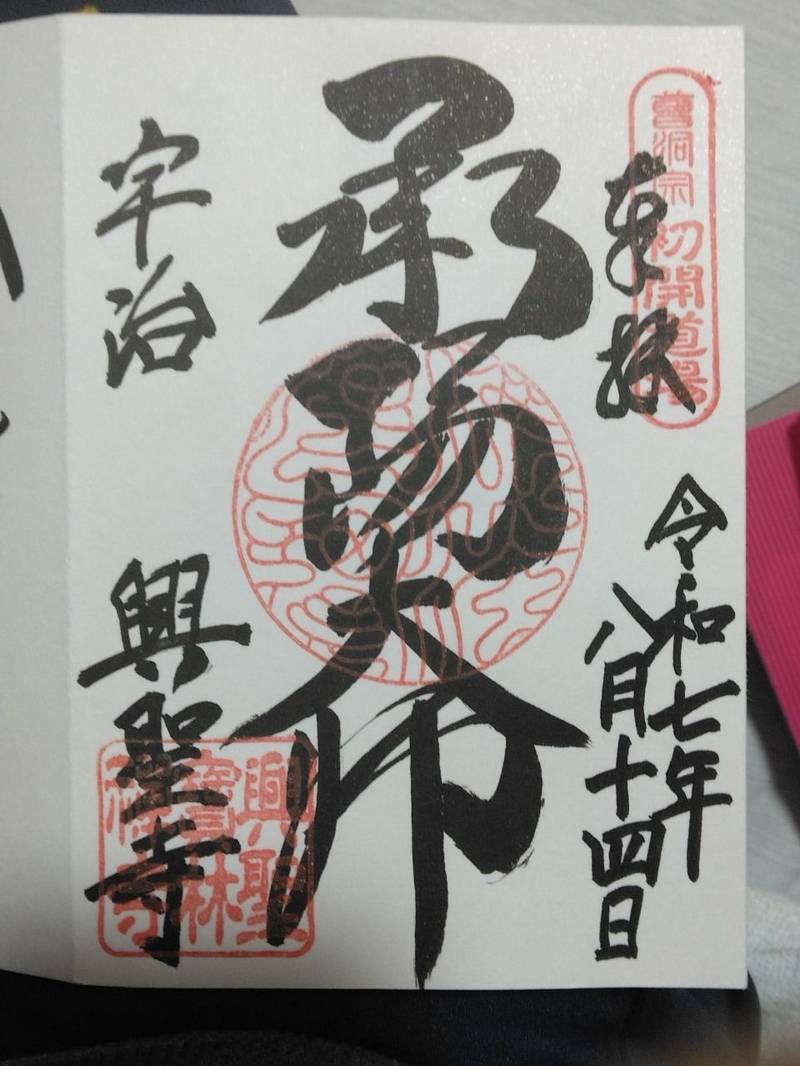 曹洞宗 初開道場
奉拝
令和七年
八月十四日
承陽大師
宇治 興聖寺
興聖
寶林
禅寺